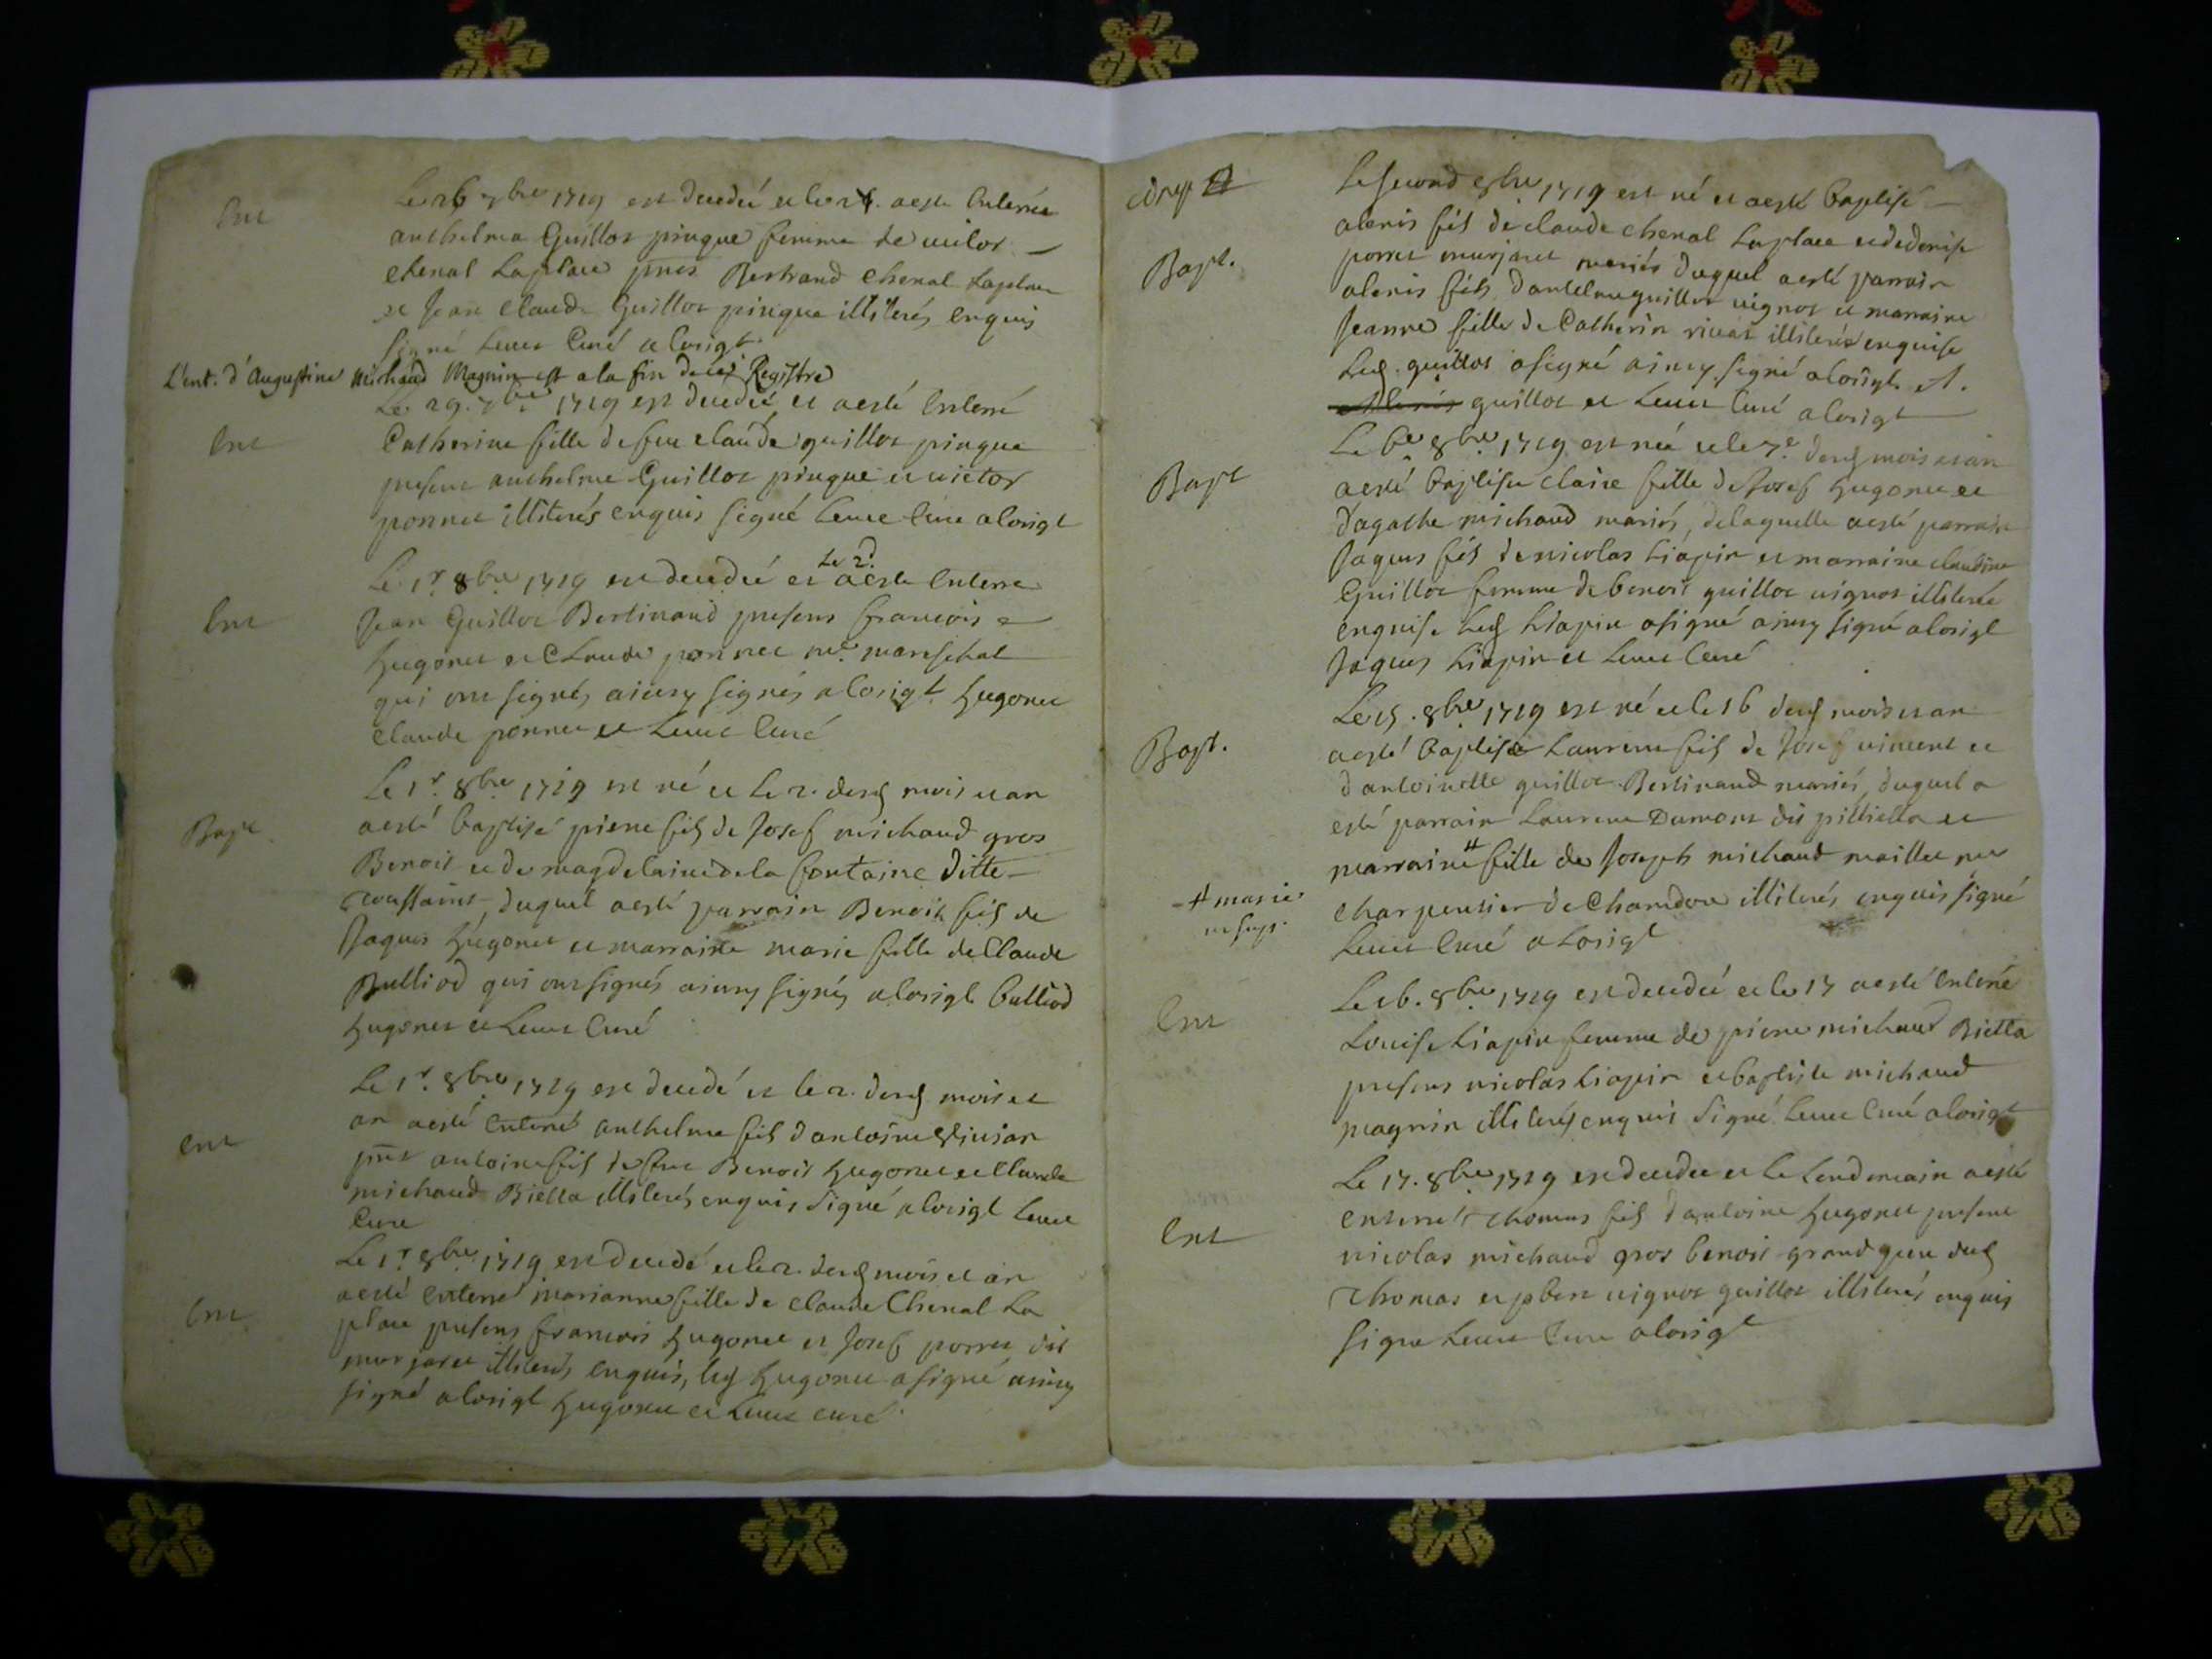 Ent
Le 26 7bre 1719 est decedée et le 27. aesté Enterrée
anthelma Guillot pingue femme de victor
chenal Laplace pnts Bertrand chenal Laplace
et Jean Claude Guillot pingue illiterés Enquis
signé Curé a Lorigl
L'ent. d'Augustine Michaud Magnin est a la fin de cez Registre
Ent
Le 29. 7bre 1719 est decedée et aesté Enterré
Catherine fille de feu claude guillot pingue
present anthelme Guillot pingue et victor
ponnet illiterés enquis signé Curé alorigl
Ent
Le 1r 8bre 1719 est decedé et Le 2d. aesté Enterré
Jean Guillot Bertinand presens francois
hugonet et Claude ponnet me mareschal
qui ont signés ainsy signés a lorigl hugonet
claude ponnet et Curé
Bapt
Le 1r. 8bre 1719 est né et Le 2. dud mois et an
aesté baptisé pierre fils de Josef michaud gros
Benoit et de magdelaine de la fontaine ditte
toussaint, duquel aesté parrain Benoit fils de
Jaques hugonet et marraine marie fille de Claude
Bulliod qui ont signés ainsy signés alorigl bulliod
hugonet et Curé
Ent
Le 1r. 8bre 1719 est decedé et le 2. dud mois et
an aesté Enterré anthelme fils d antoine
pnts antoine fils de feu Benoit hugonet et Claude
michaud Bietta illiterés enquis signé alorigl
Cure
Ent
Le 1r 8bre 1719 est decedé et le 2. dud mois et an
aesté enterré marianne fille de claude Chenal La
place presens francois hugonet et Josef porret dit
murjaret illiterés enquis, led hugonet asigné ainsy
signé alorigl hugonet et curé
Bapt.
Le second 8bre 1719 est né et aesté baptisé
alexis fils de claude chenal Laplace et de denise
porret murjaret mariés duquel aesté parrain
alexis fils d antelme guillot vignot et marraine
Jeanne fille de Catherin illiterée enquise
Led. guillot asigné ainsy signé alorigl A.
guillot et Curé alorigl
Bapt
Le 6e 8bre 1719 est née et le 7e dud mois et an
aesté baptisée claire fille de Josef hugonet et
d'agathe michaud mariés, de laquelle aesté parrain
Jaques fils de nicolas Liapin et marraine claudine
Guillot femme de benoit guillot vignot illiterée
enquise Led Liapin asigné ainsy signé alorigl
Jaques Liapin et Curé
Bapt.
Le 15. 8bre 1719 est né et le 16 dud mois et an
aesté baptisé Laurent fils de Josef vincent et
d antoinette guillot Bertinand mariés, duquel a
esté parrain Laurent Dumont dit pilliella et
marraine # fille de Joseph michaud maillet me
# marie
charpentier de Chanidou illiterés enquis signé
Curé a Lorigl
Ent
Le 16. 8bre 1719 est decedée et le 17 aesté Enterré
Louise Liapin femme de pierre michaud Bietta
presens nicolas Liapin et baptiste michaud
magnin illiterés enquis signé Curé alorigl
Ent
Le 17. 8bre 1719 est decedée et le Lendemain aesté
enterré Thomas fils d antoine hugonet present
nicolas michaud gros benoit grand pere dud
Thomas et vignot guillot illiterés enquis
signé Cure alorigl